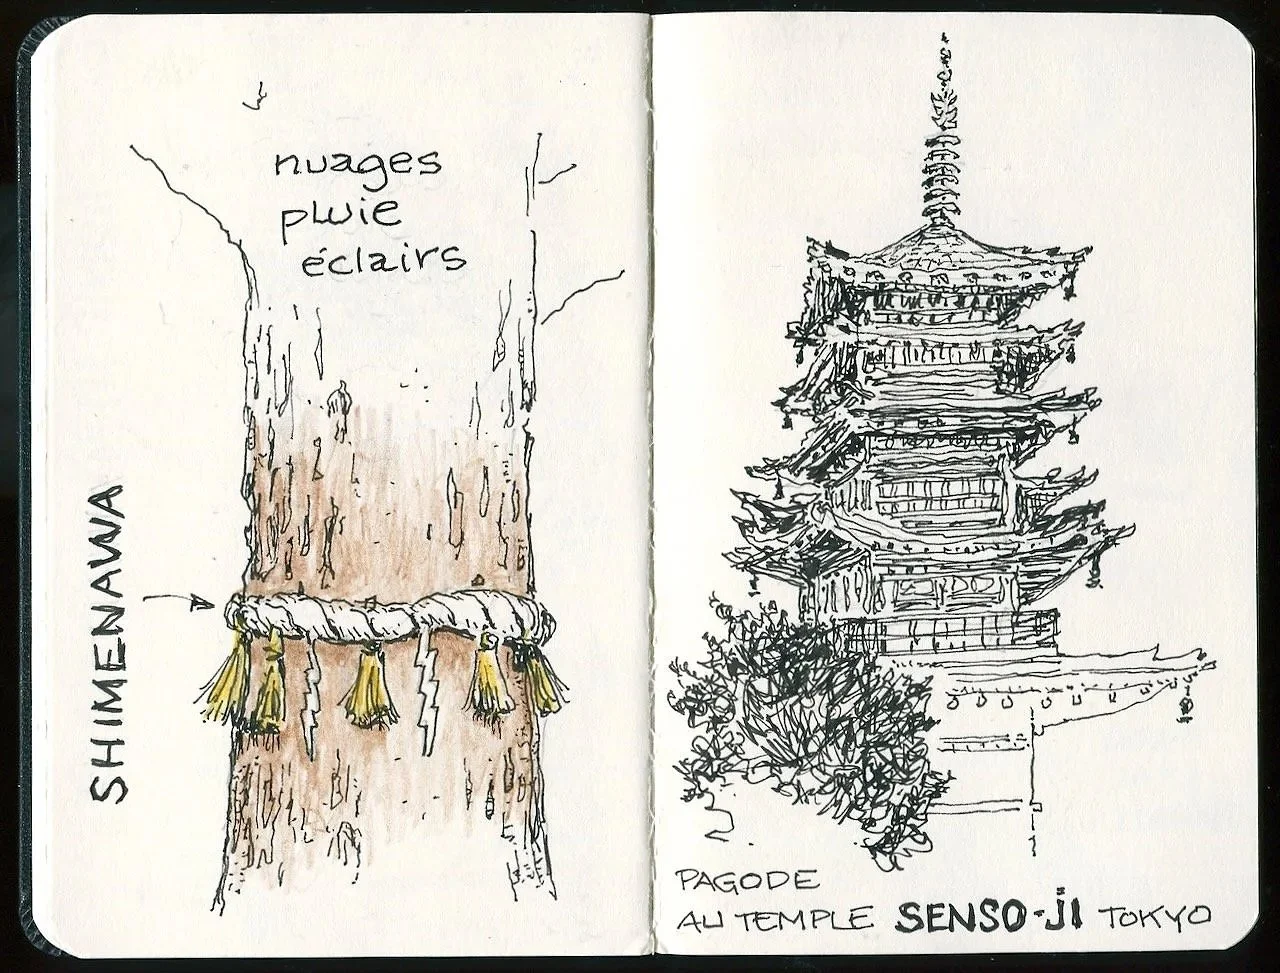 nuages
pluie
éclairs
SHIMENAWA
PAGODE
AU TEMPLE SENSO-JI TOKYO